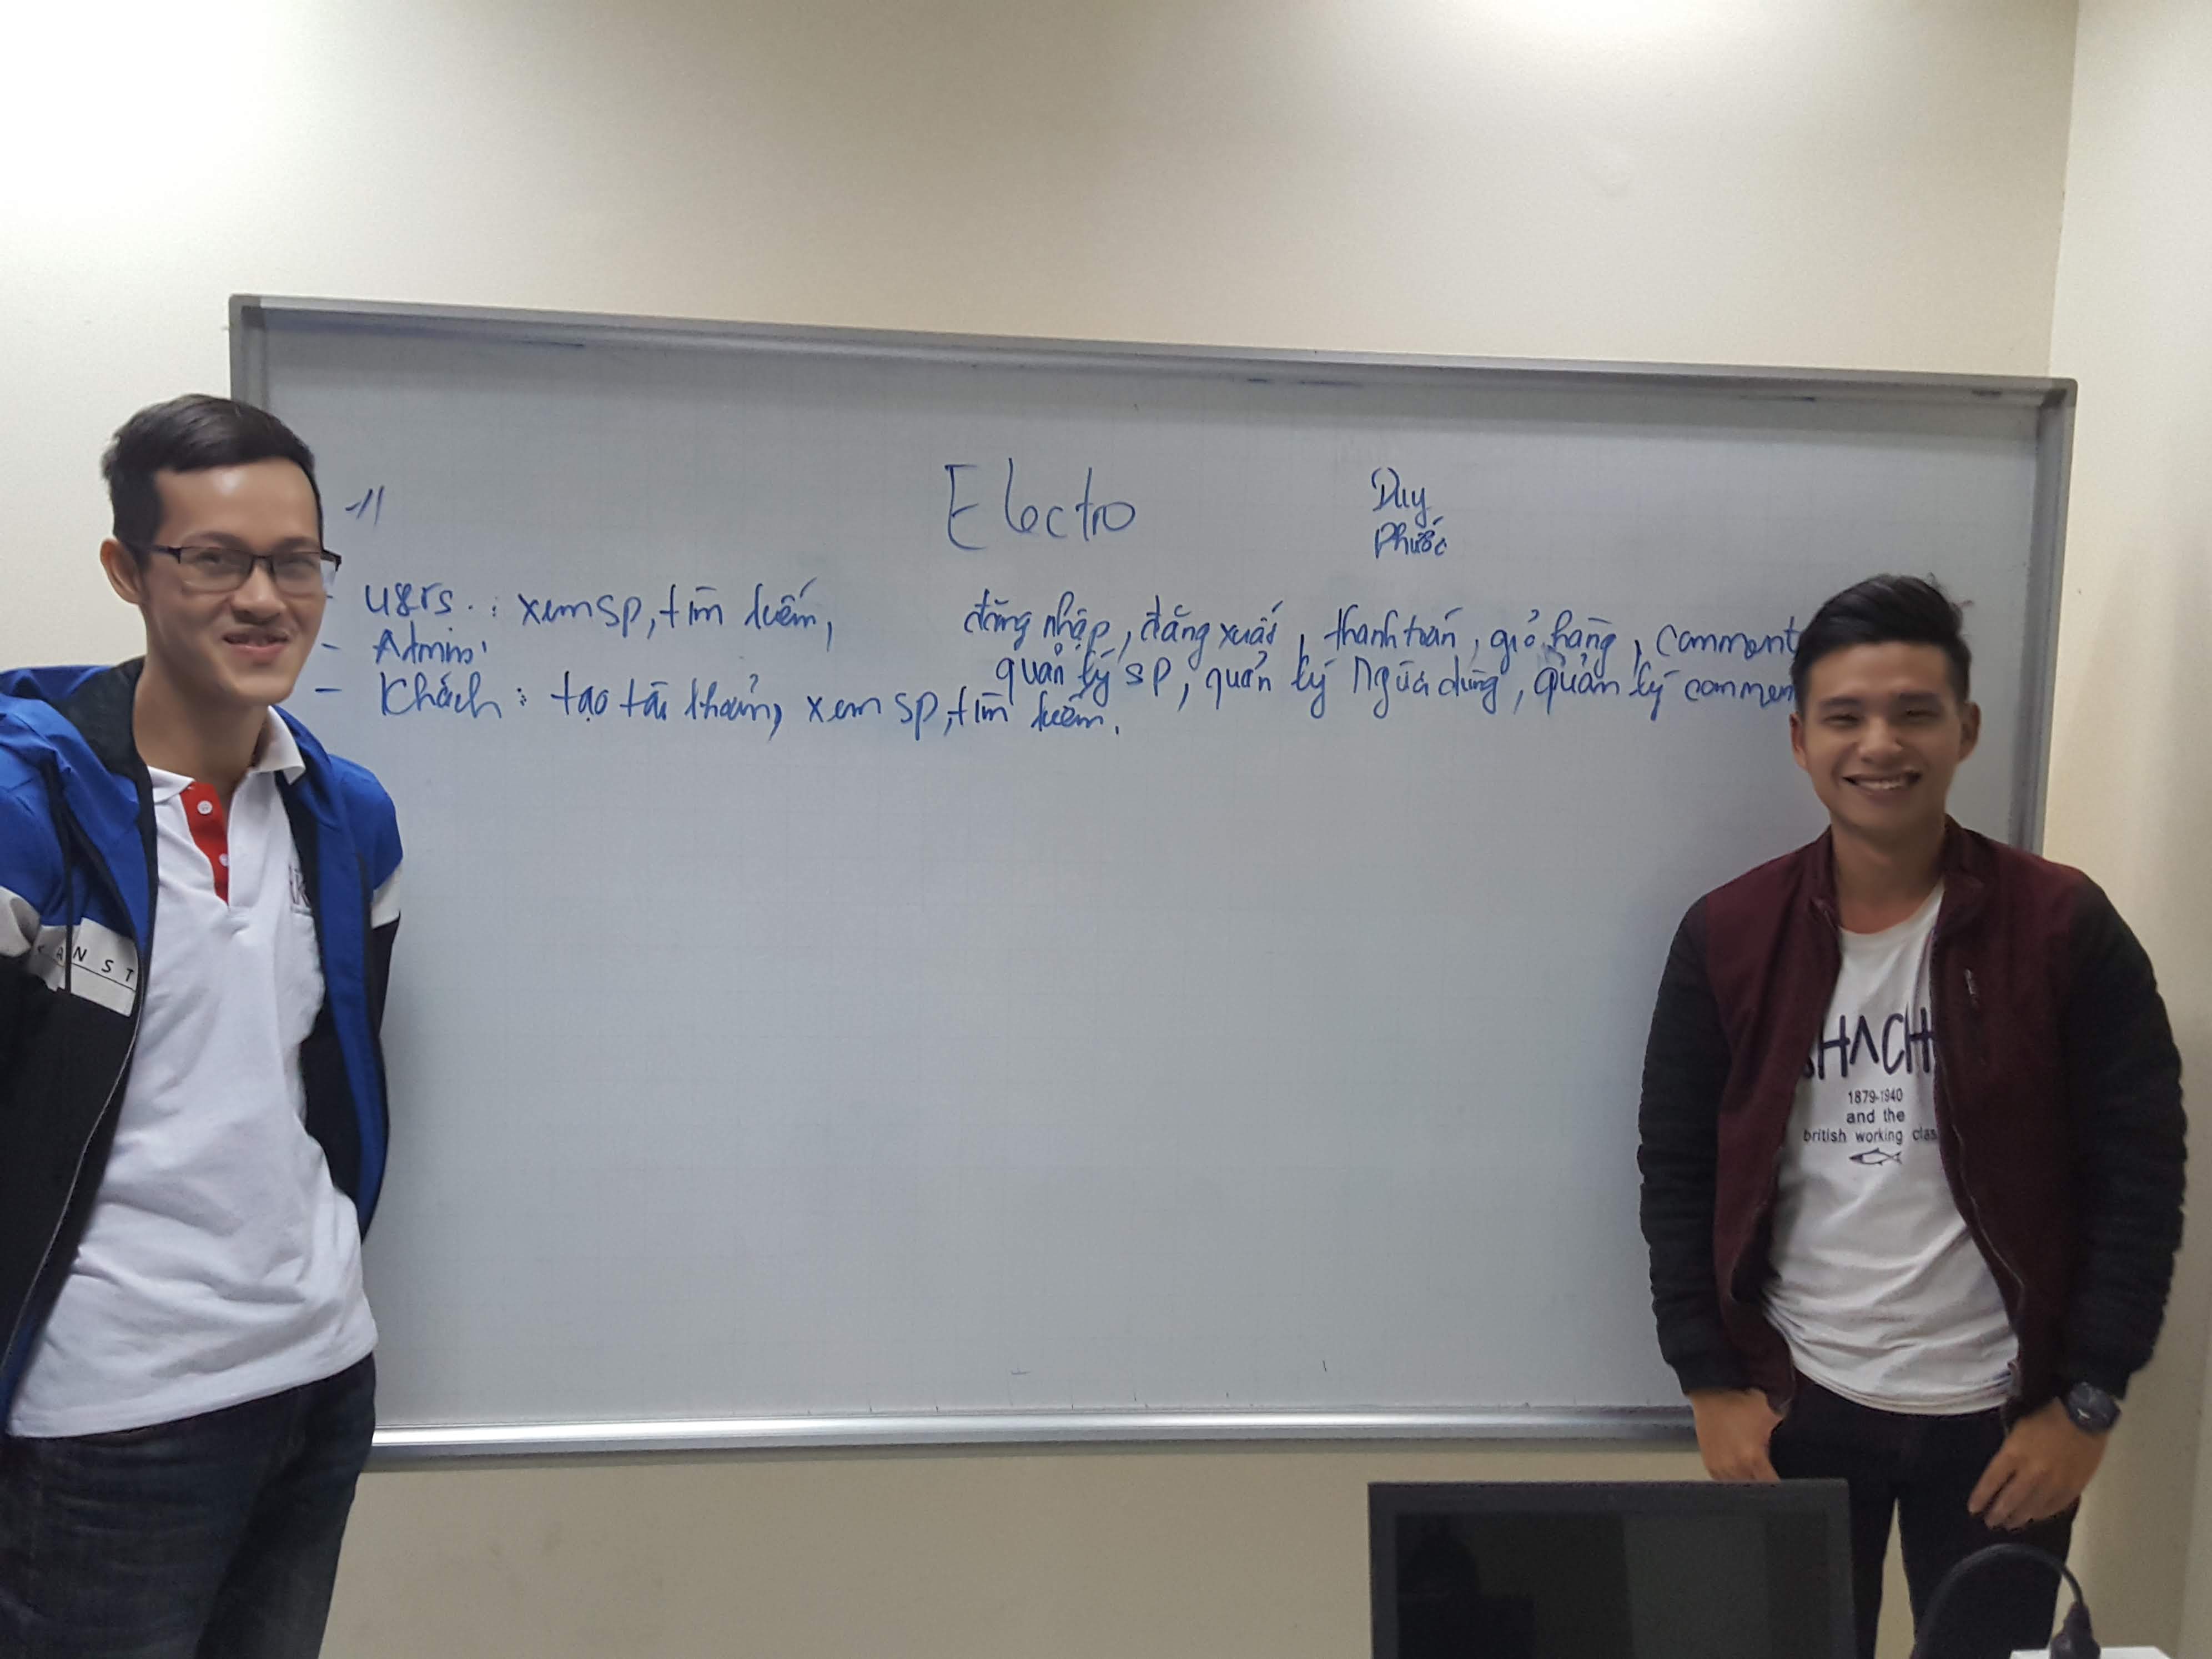 Electro
Duy
Phước
- users. : xem sp, tìm kiếm, đăng nhập, đăng xuất, thanh toán, giỏ hàng, comment
- Admin: quản lý sp, quản lý người dùng, quản lý commen
- Khách: tạo tài khoản, xem sp, tìm kiếm.
ANST
HACH
1879-1940
and the
british working clas